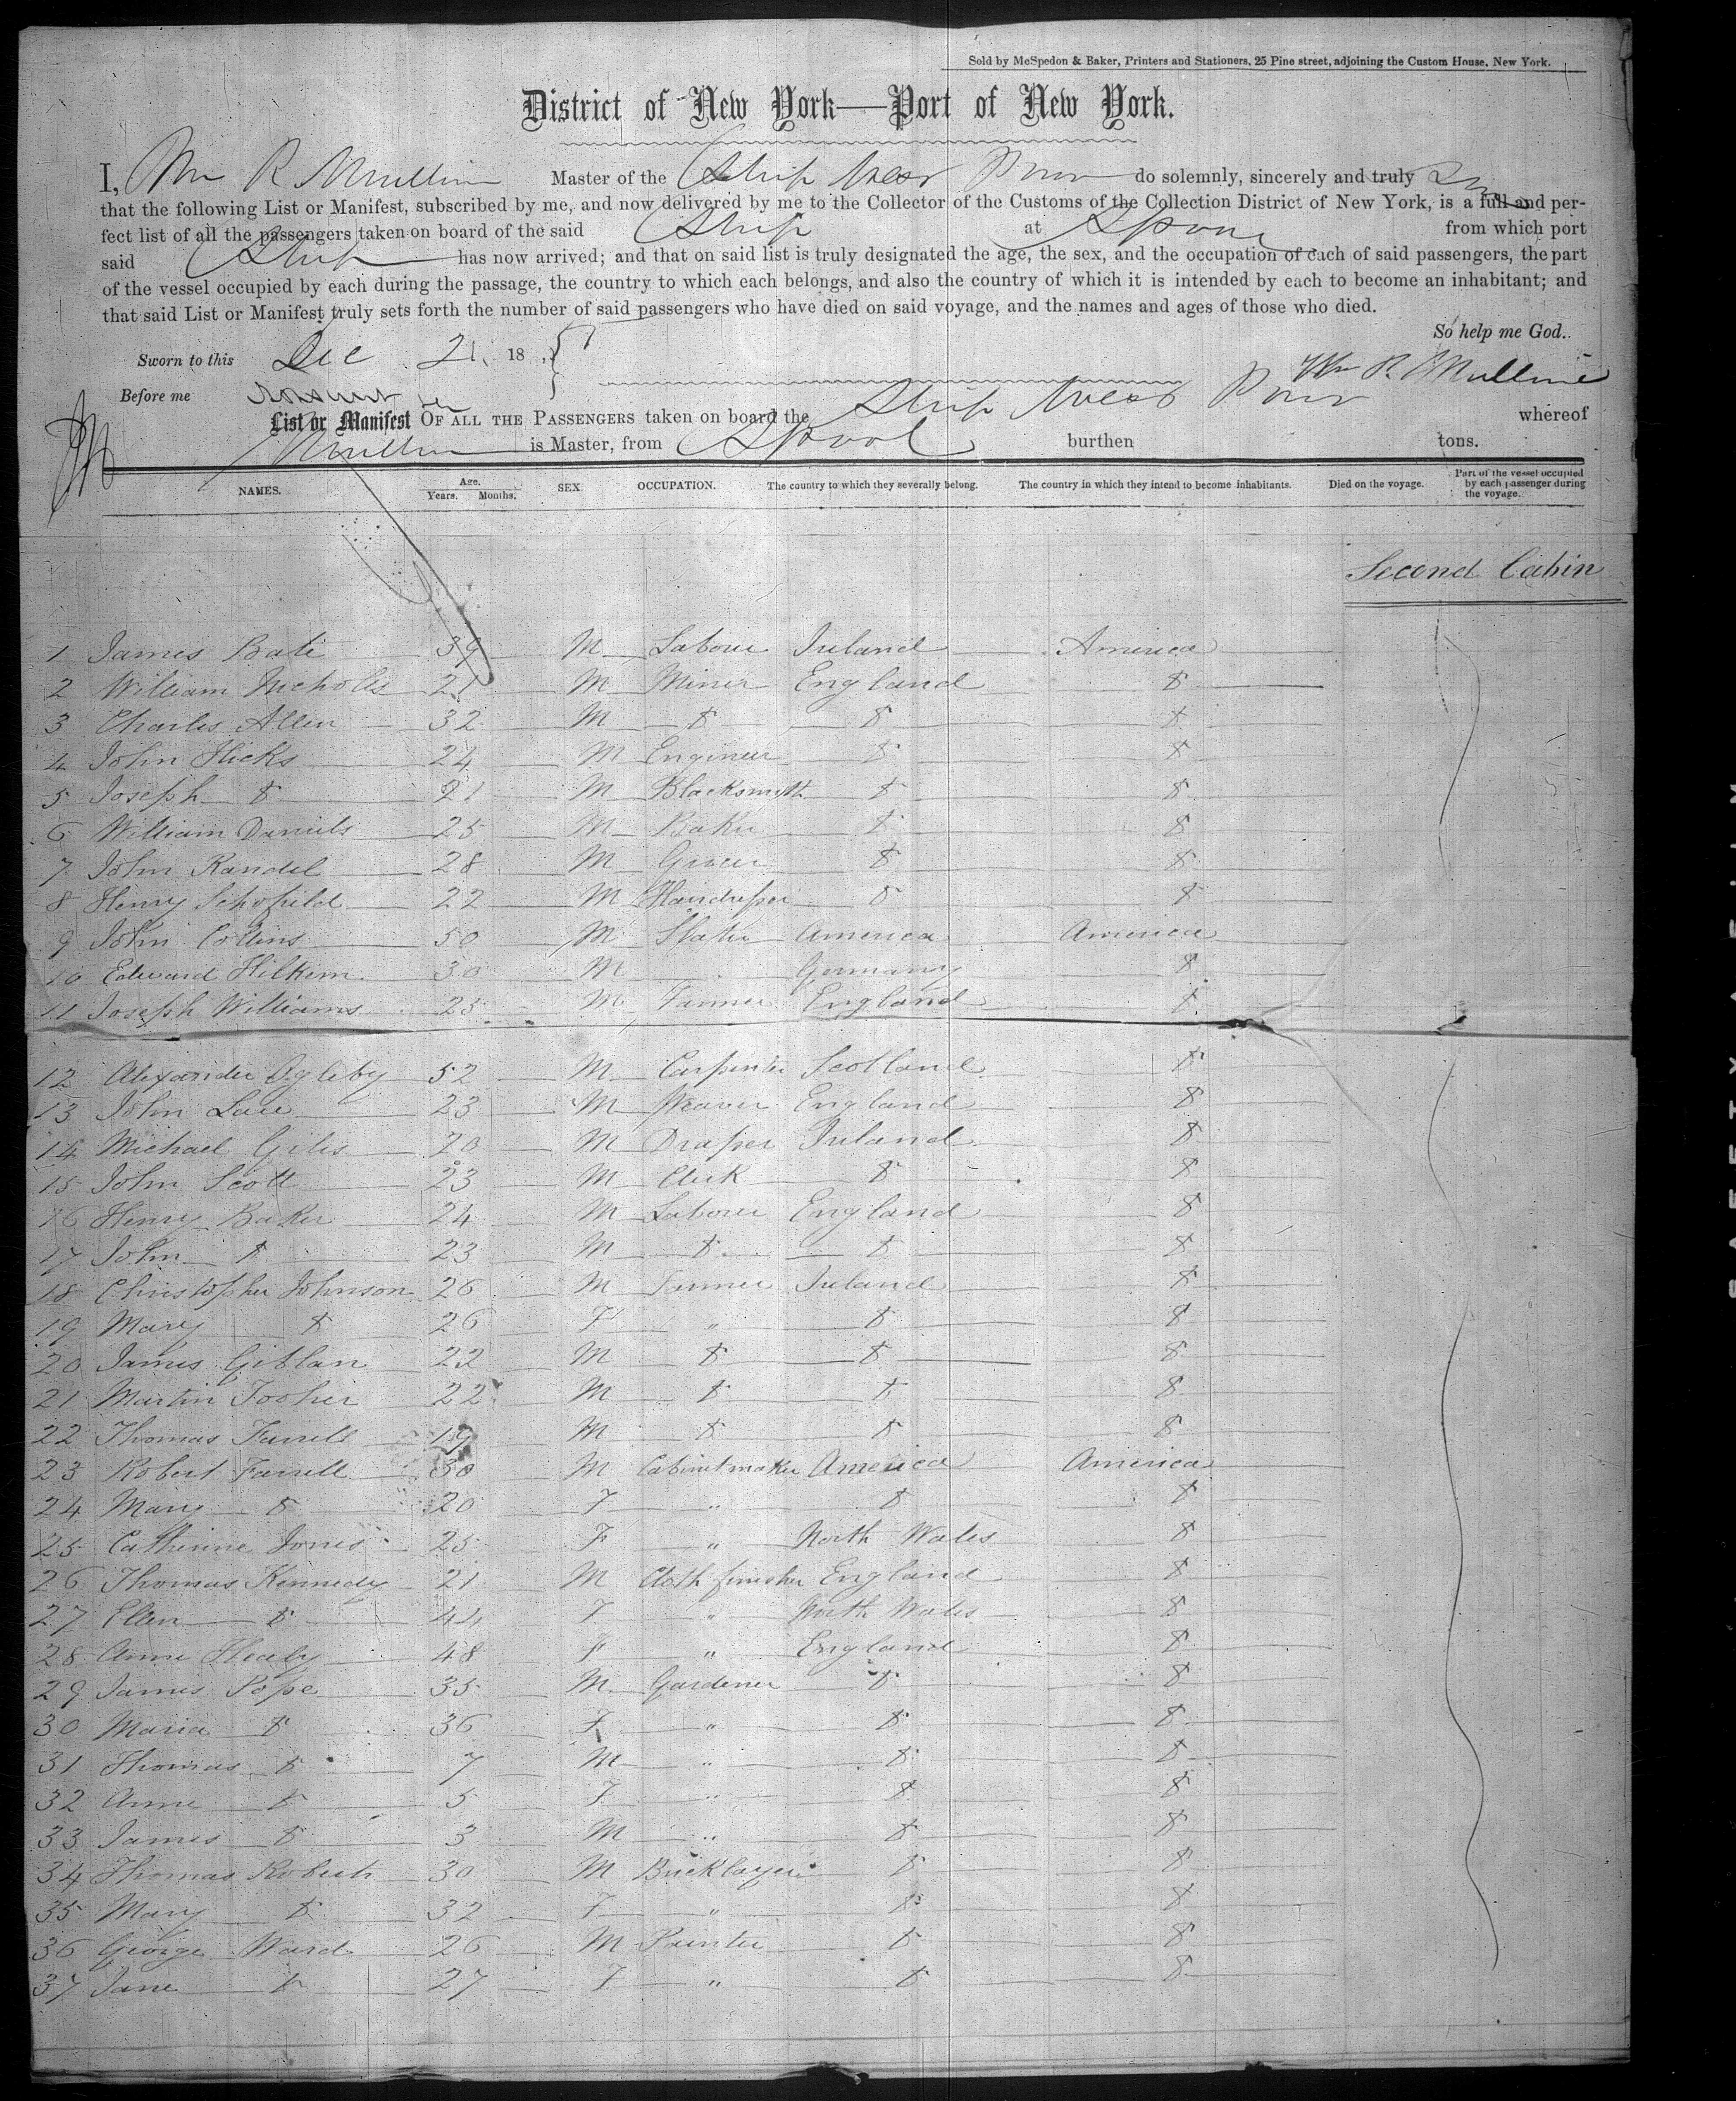 Sold by McSpedon & Baker, Printers and Stationers, 25 Pine street, adjoining the Custom House, New York.
District of New York—Port of New York.
I, Wm R Mullin Master of the Ship West Point do solemnly, sincerely and truly
that the following List or Manifest, subscribed by me, and now delivered by me to the Collector of the Customs of the Collection District of New York, is a full and per-
fect list of all the passengers taken on board of the said Ship at Lpool from which port
said Ship has now arrived; and that on said list is truly designated the age, the sex, and the occupation of each of said passengers, the part
of the vessel occupied by each during the passage, the country to which each belongs, and also the country of which it is intended by each to become an inhabitant; and
that said List or Manifest truly sets forth the number of said passengers who have died on said voyage, and the names and ages of those who died.
So help me God.
Sworn to this Dec 21, 18
Wm R Mullin
Before me
List or Manifest OF ALL THE PASSENGERS taken on board the Ship West Point whereof
Mullin is Master, from Lpool burthen tons.
NAMES. Age. Years. Months. SEX. OCCUPATION. The country to which they severally belong. The country in which they intend to become inhabitants. Died on the voyage. Part of the vessel occupied by each passenger during the voyage.
Second Cabin
1 James Bate 39 M Labourer Ireland America
2 William Nicholls 21 M Miner England do
3 Charles Allen 32 M do do do
4 John Hicks 24 M Engineer do do
5 Joseph do 21 M Blacksmith do do
6 William Daniels 25 M Baker do do
7 John Randel 28 M Grocer do do
8 Henry Schofield 22 M Hairdresser do do
9 John Collins 50 M Slater America America
10 Edward Hilkem 30 M Germany do
11 Joseph Williams 25 M Farmer England do
12 Alexander Ogleby 52 M Carpenter Scotland do
13 John Law 23 M Weaver England do
14 Michael Giles 20 M Draper Ireland do
15 John Scott 23 M Clerk do do
16 Henry Baker 24 M Labourer England do
17 John do 23 M do do do
18 Christopher Johnson 26 M Farmer Ireland do
19 Mary do 26 F " do do
20 James Giblan 22 M do do do
21 Martin Tooher 22 M do do do
22 Thomas Farrell 19 M do do do
23 Robert Farrell 30 M Cabinetmaker America America
24 Mary do 20 F " do do
25 Catherine Jones 25 F " North Wales do
26 Thomas Kennedy 21 M Cloth finisher England do
27 Ellen do 44 F " North Wales do
28 Anne Healy 48 F " England do
29 James Pope 35 M Gardener do do
30 Maria do 36 F " do do
31 Thomas do 7 M " do do
32 Anne do 5 F " do do
33 James do 3 M " do do
34 Thomas Roberts 30 M Bricklayer do do
35 Mary do 32 F " do do
36 George Ward 26 M Painter do do
37 Jane do 27 F " do do